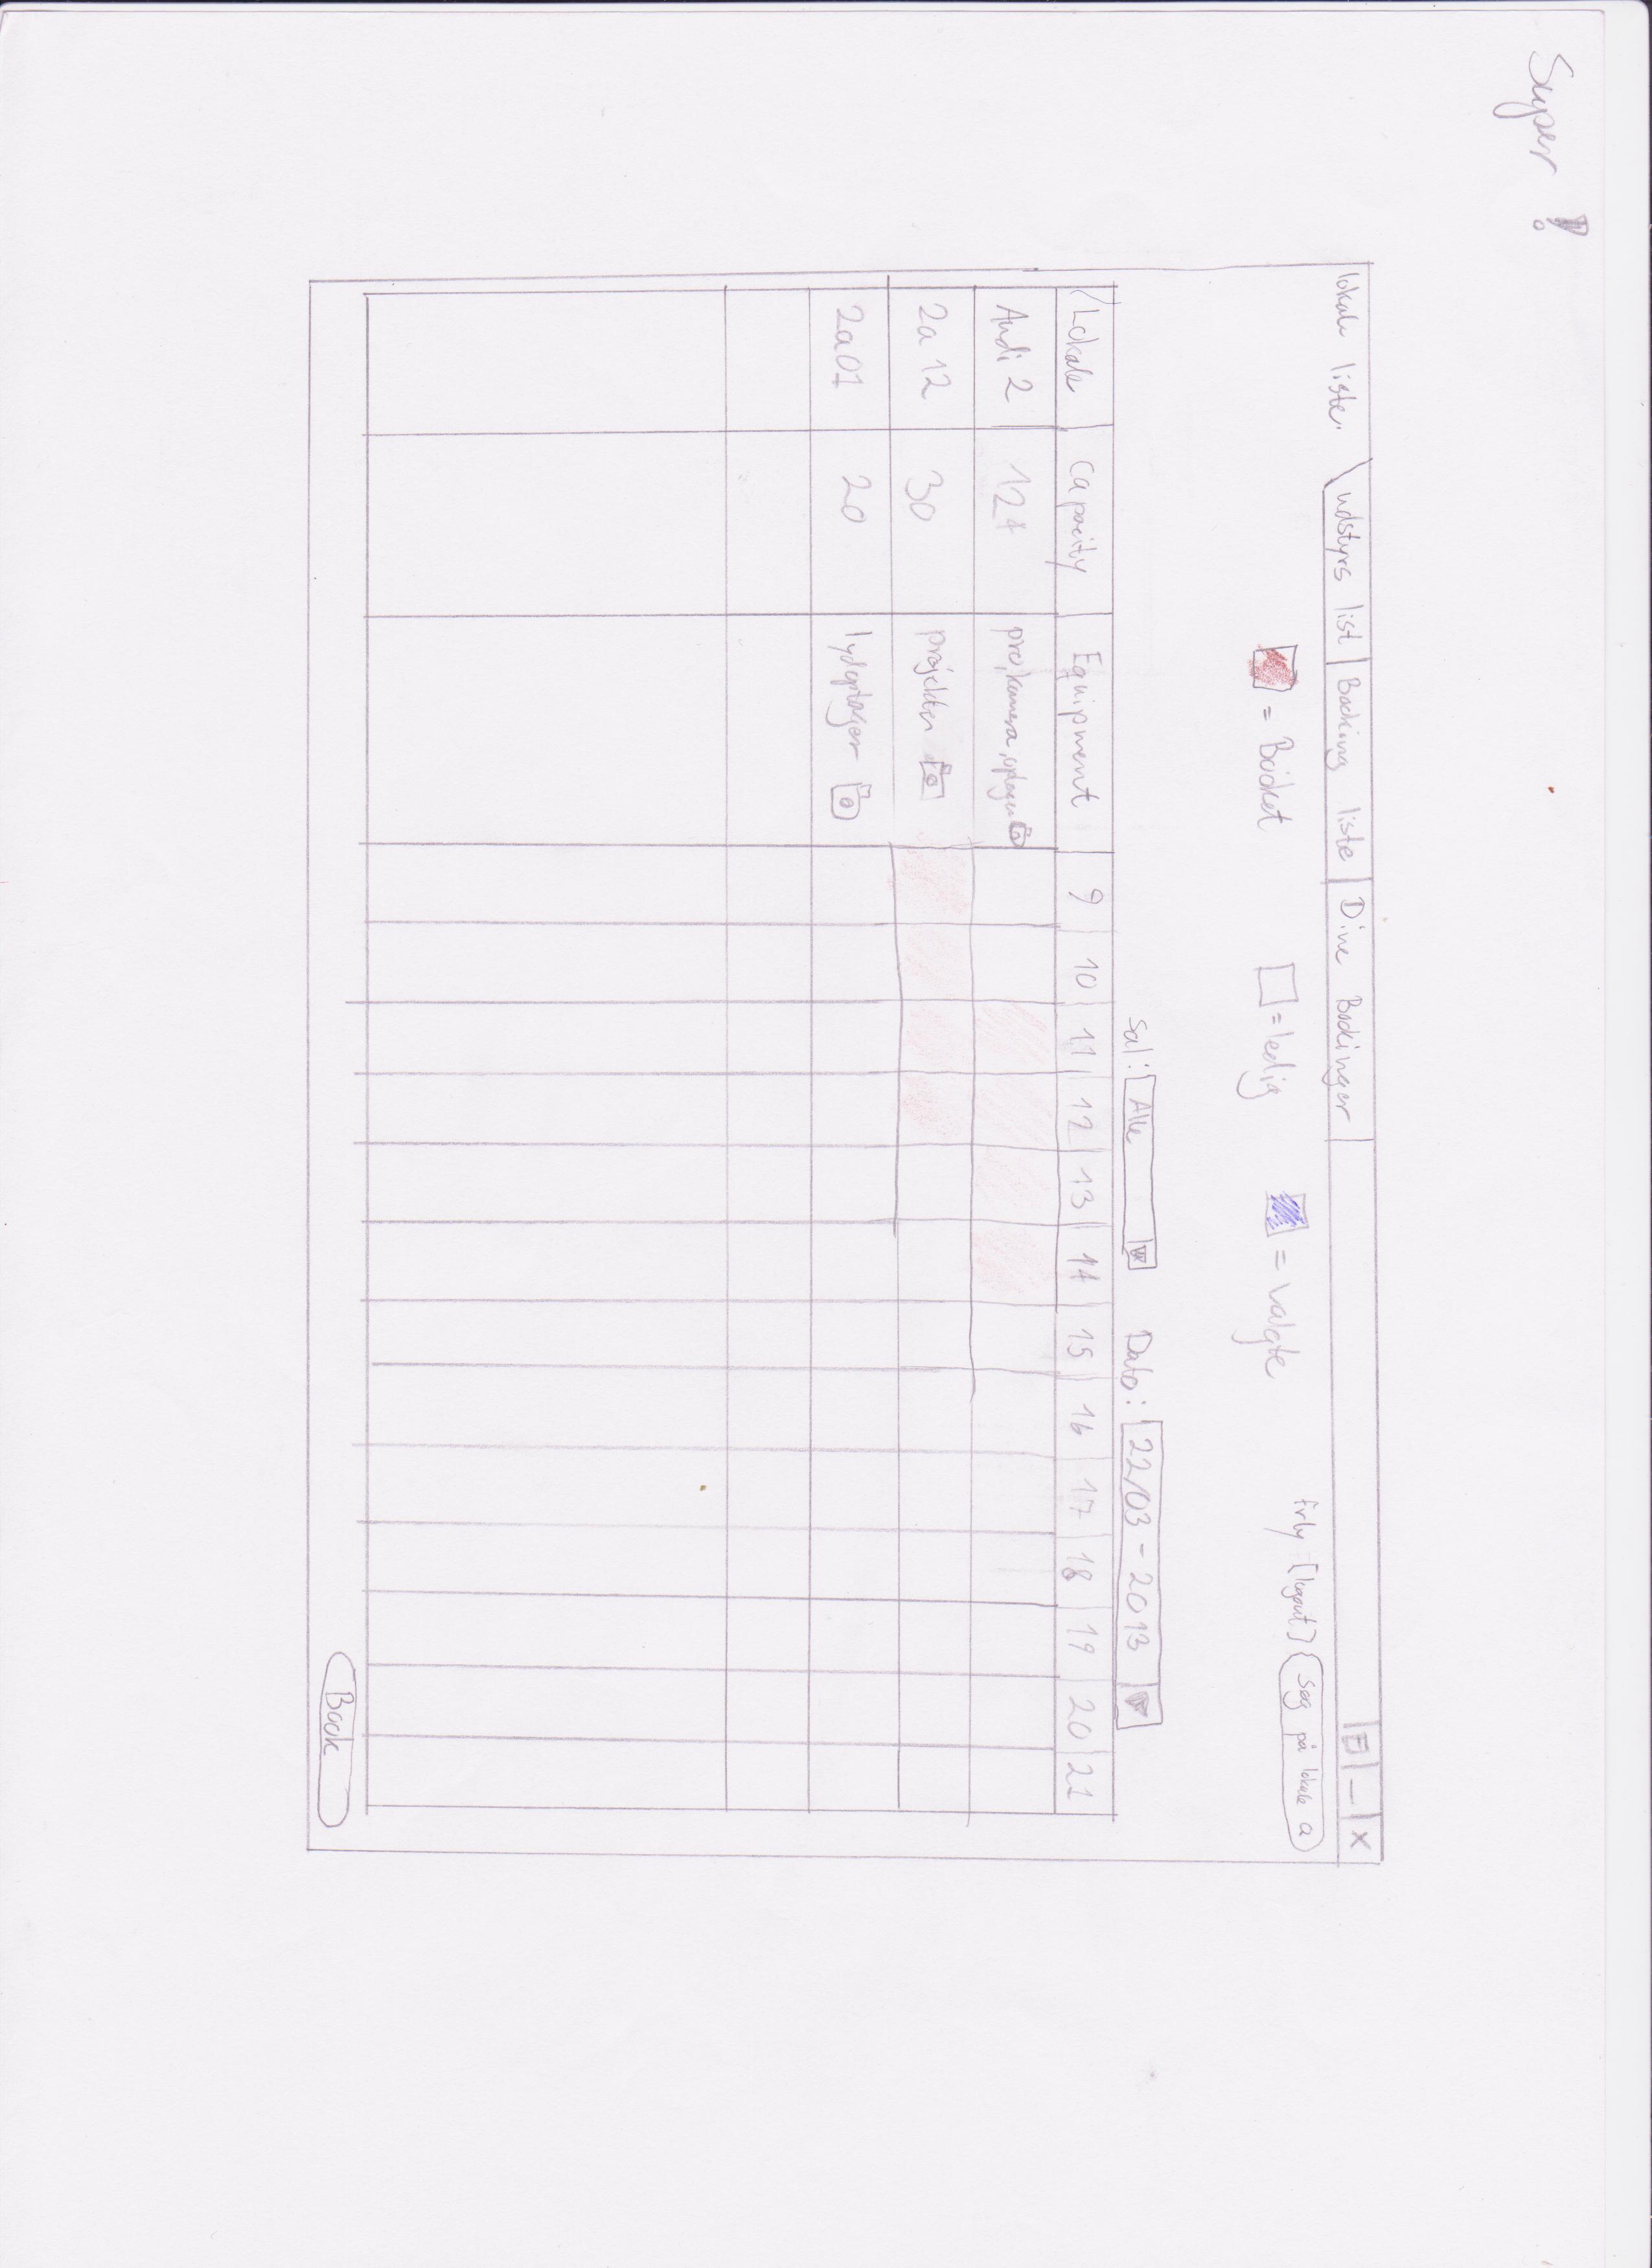 Super!
lokale liste. udstyrs list Booking liste Dine Bookinger - X
= Booket = ledig = valgte [logout] Søg på lokale a
Sal: Alle Dato: 22/03-2013
Lokale Capacity Equipment 9 10 11 12 13 14 15 16 17 18 19 20 21
Audi 2 124 pro, kamera,
2a12 30 projekter
2a01 20 lydoptager
Book